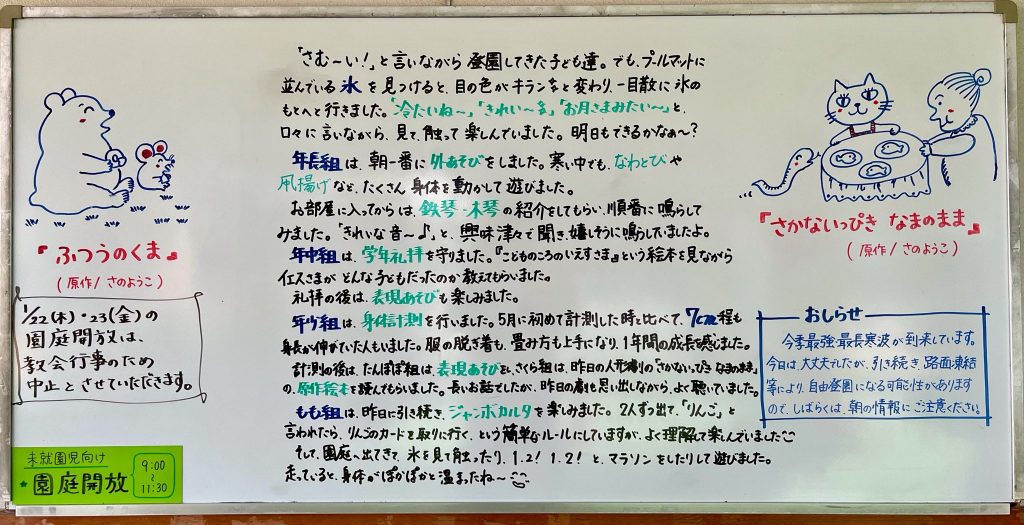 「さむ～い!」と言いながら登園してきた子ども達。でも、プールマットに
並んでいる氷を見つけると、目の色がキランと変わり、一目散に氷の
もとへと行きました。「冷たいね～」「きれい～」「お月さまみたい～」と、
口々に言いながら、見て、触って楽しんでいました。明日もできるかなぁ～?
年長組は、朝一番に外あそびをしました。寒い中でも、なわとびや
凧揚げなど、たくさん身体を動かして遊びました。
お部屋に入ってからは、鉄琴・木琴の紹介をしてもらい、順番に鳴らして
みました。「きれいな音～♪」と、興味津々で聞き、嬉しそうに鳴らしていましたよ。
年中組は、学年礼拝を守りました。『こどものころのいえすさま』という絵本を見ながら
イエスさまがどんな子どもだったのか教えてもらいました。
礼拝の後は、表現あそびも楽しみました。
年少組は、身体計測を行いました。5月に初めて計測した時と比べて、7cm程も
身長が伸びていた人もいました。服の脱ぎ着も、畳み方も上手になり、1年間の成長を感じました。
計測の後は、たんぽぽ組は、表現あそびを、さくら組は、昨日の人形劇の『さかないっぴき なまのまま』
の、原作絵本を読んでもらいました。長いお話でしたが、昨日の劇も思い出しながら、よく聴いていました。
もも組は、昨日に引き続き、ジャンボカルタを楽しみました。2人ずつ出て、「りんご」と
言われたら、りんごのカードを取りに行く、という簡単なルールにしていますが、よく理解して楽しんでいました
そして、園庭へ出てきて、氷を見て触ったり、1.2! 1.2! と、マラソンをしたりして遊びました。
走っていると、身体がぽかぽかと温まったね～
『ふつうのくま』
(原作/さのようこ)
1/22(木)・23(金)の
園庭開放は、
教会行事のため
中止とさせていただきます。
未就園児向け
園庭開放
9:00
～
11:30
『さかないっぴき なまのまま』
(原作/さのようこ)
おしらせ
今季最強・最長寒波が到来しています。
今日は大丈夫でしたが、引き続き、路面凍結
等により、自由登園になる可能性があります
ので、しばらくは、朝の情報にご注意ください。